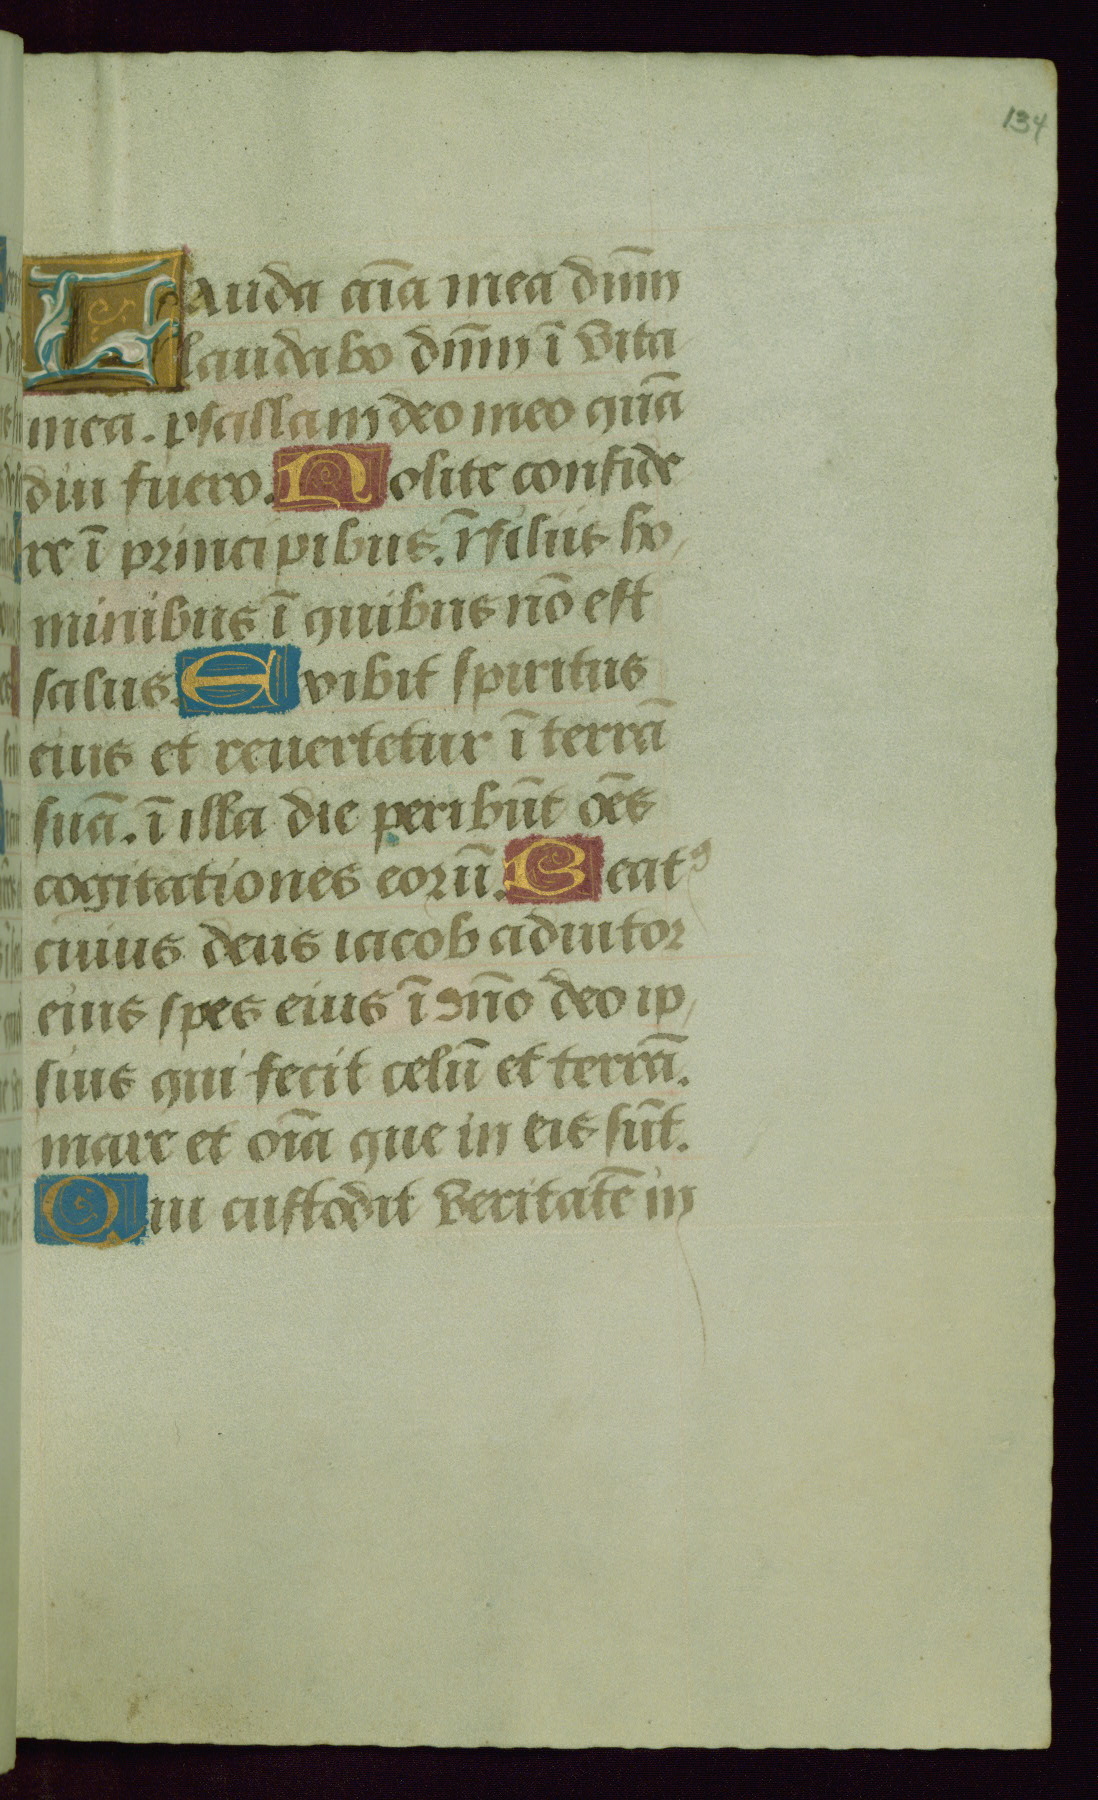 134
Lauda aīa mea dūm
laudabo dnm̄ ī vita
mea. psallam deo meo quā
diu fuero. Nolite confide
re ī principibus. ī filiis ho
minibus ī quibus nō est
salus. Exibit spiritus
eius et reuertetur ī terrā
suā. ī illa die peribūt oēs
cogitationes eorū. Beatꝰ
cuius deus iacob adiutor
eius spes eius ī dño deo ip
sius qui fecit celū et terrā.
mare et oīa que in eis sūt.
Qui custodit veritatē in